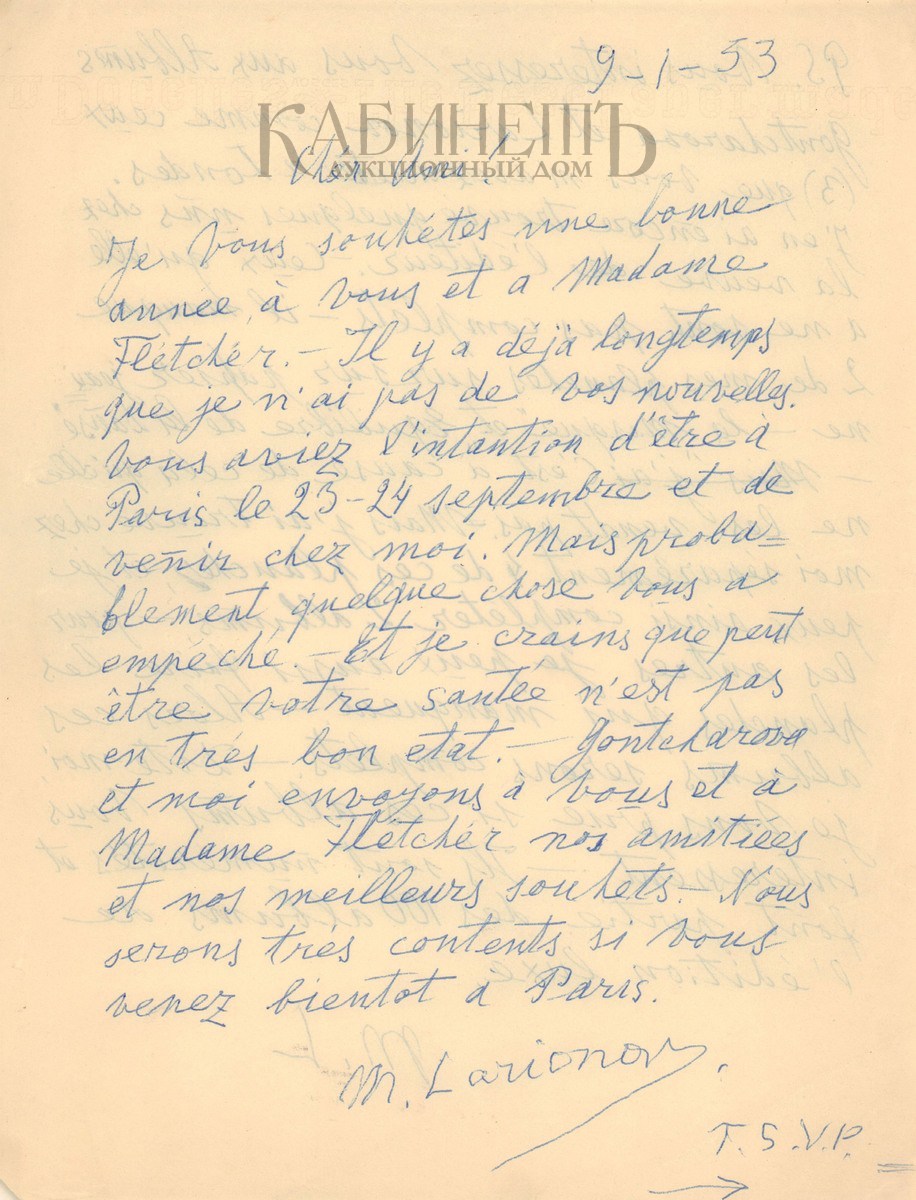 9-1-53
КАБИНЕТЪ
АУКЦИОННЫЙ ДОМ
Chér Ami!
Je vous souhétes une bonne
année à vous et a Madame
Flétchér. – Il y a déjà longtemps
que je n'ai pas de vos nouvelles.
Vous aviez l'intantion d'être à
Paris le 23-24 septembre et de
venir chez moi. Mais proba=
blement quelque chose vous a
empéché. – Et je crains que peut
être votre santée n'est pas
en trés bon etat. – Gontcharova
et moi envoyons à vous et à
Madame Flétchér nos amitiées
et nos meilleurs souhets – Nous
serons très contents si vous
venez bientot a Paris.
M. Larionov.
T.S.V.P.